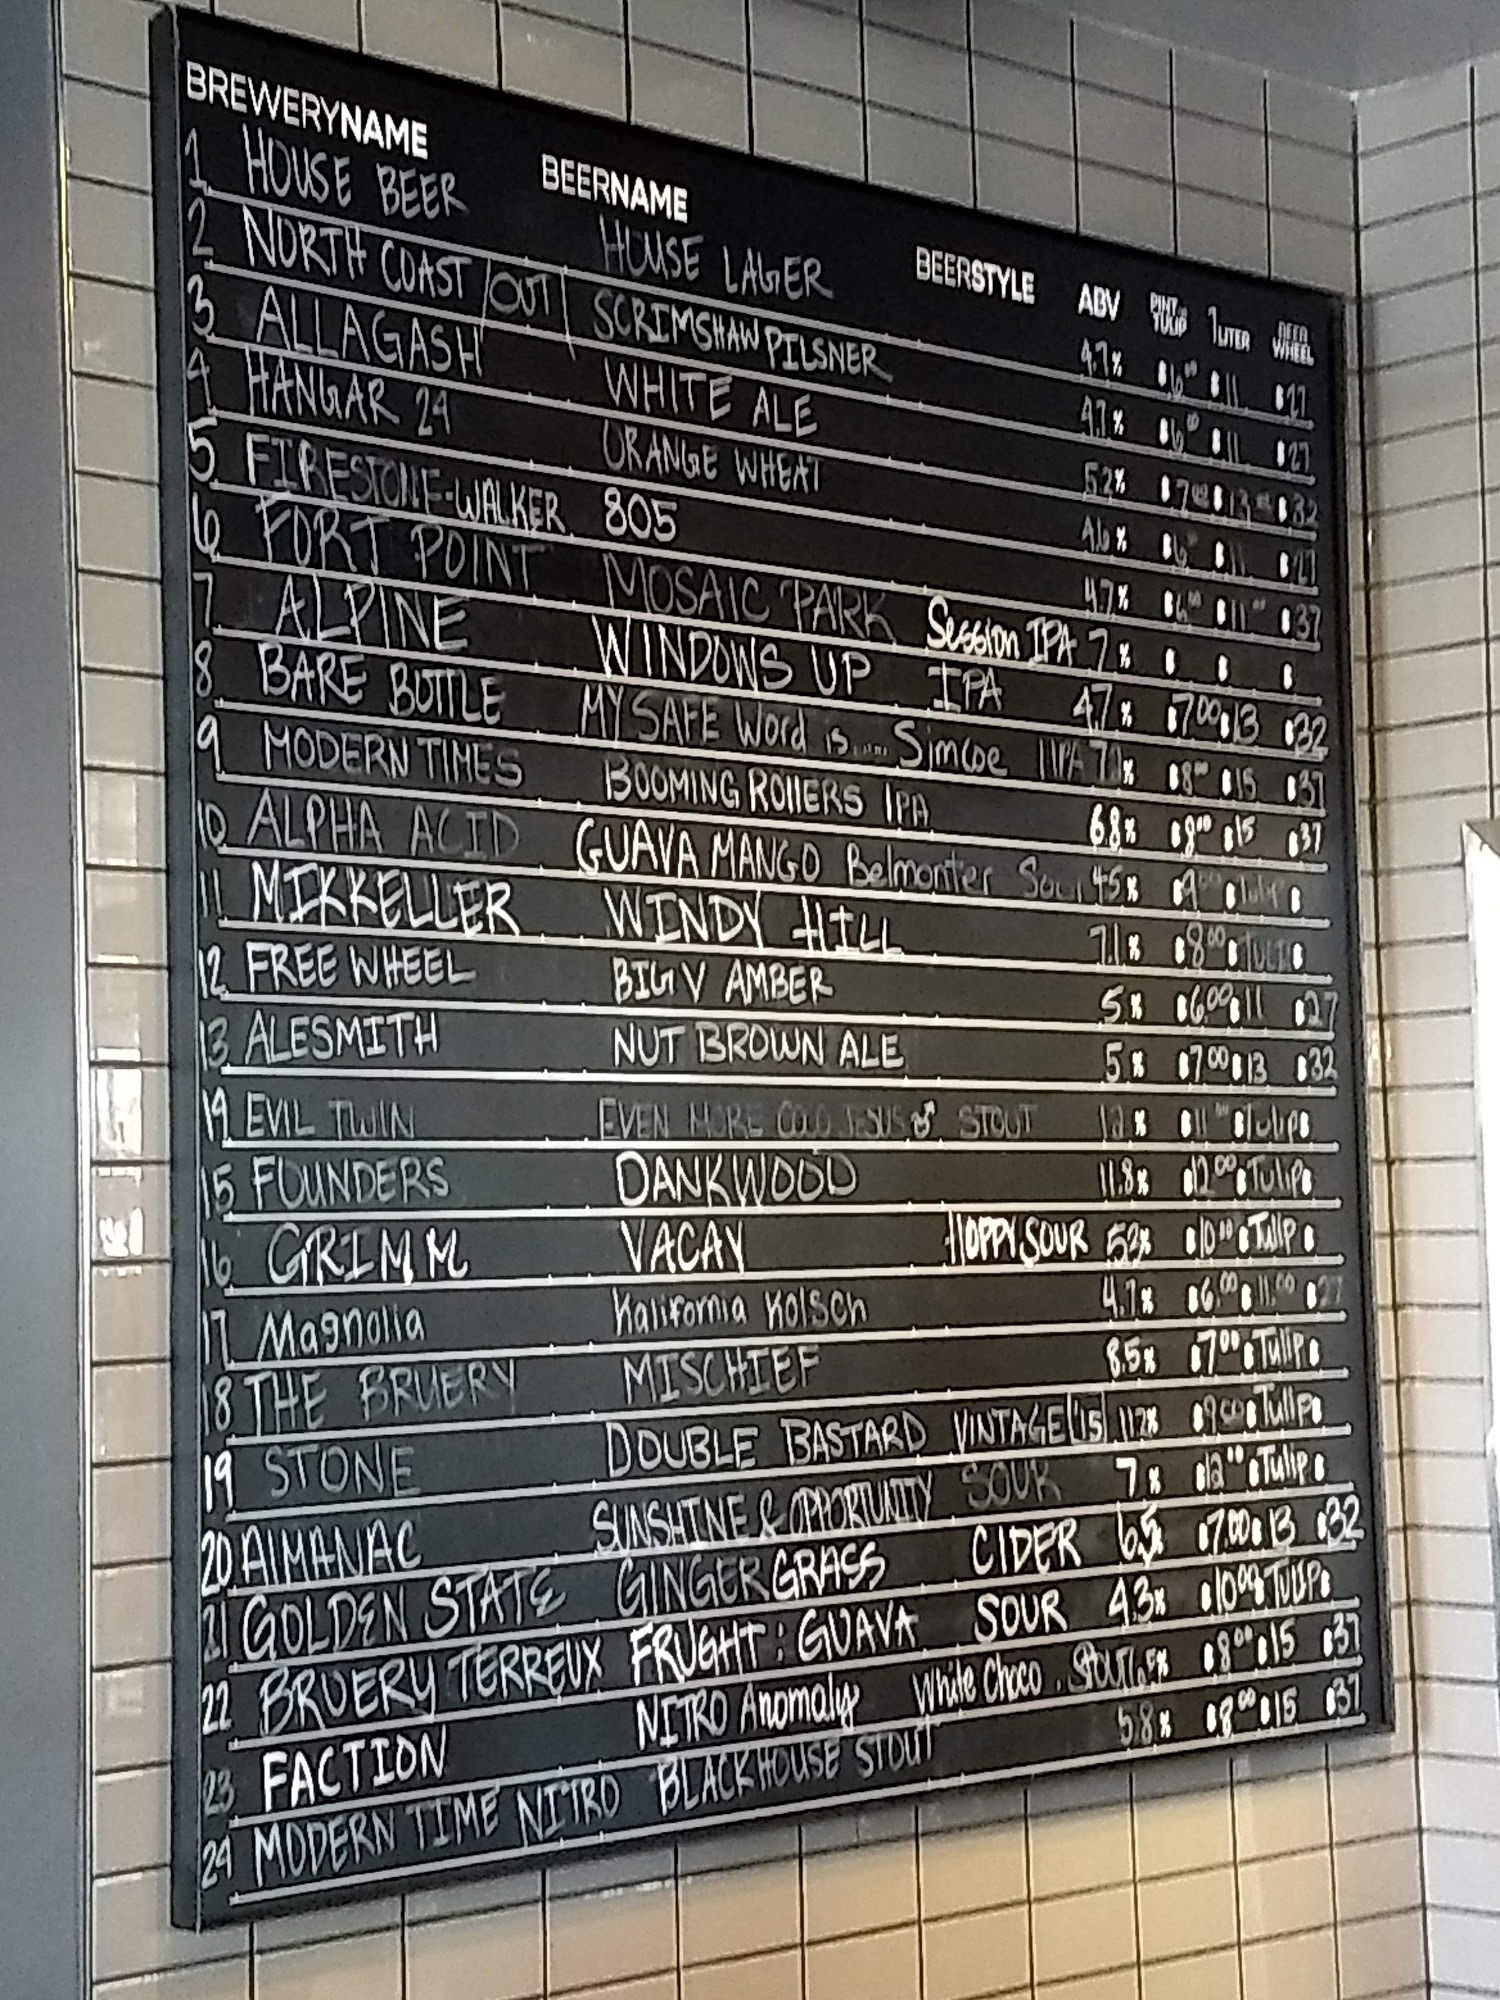 BREWERYNAME BEERNAME BEERSTYLE ABV PINT TULIP 1LITER BEER WHEEL
1 HOUSE BEER HOUSE LAGER 4.7% $6.00 $11 $27
2 NORTH COAST OUT SCRIMSHAW PILSNER 4.7% $6.00 $11 $27
3 ALLAGASH WHITE ALE 5.2% $7.00 $13 $32
4 HANGAR 24 ORANGE WHEAT 4.6% $6 $11 $27
5 FIRESTONE-WALKER 805 4.7% $6.00 $11.00 $37
6 FORT POINT MOSAIC PARK Session IPA 7% $ $ $
7 ALPINE WINDOWS UP IPA 47% $7.00 $13 $32
8 BARE BOTTLE MY SAFE Word is.... Simcoe IIPA $8.00 $15 $37
9 MODERN TIMES BOOMING ROllERS IPA 6.8% $8.00 $15 $37
10 ALPHA ACID GUAVA MANGO Belmonter 45% $9 $Tulip $
11 MIKKELLER WINDY HILL 7.1% $8.00 $TULIP $
12 FREE WHEEL BIG V AMBER 5% $6.00 $11 $27
13 ALESMITH NUT BROWN ALE 5% $7.00 $13 $32
14 EVIL TWIN EVEN MORE COCO JESUS STOUT 12% $11 $Tulip $
15 FOUNDERS DANKWOOD 11.8% $12.00 $Tulip $
16 GRIMM VACAY HOPPY SOUR 53% $10.00 $Tulip $
17 Magnolia Kalifornia Kolsch 4.7% $6.00 $11.00 $27
18 THE BRUERY MISCHIEF 8.5% $7.00 $Tulip $
19 STONE DOUBLE BASTARD VINTAGE '15 112% $9.00 $Tulip $
20 AlMANAC SUNSHINE & OPPORTUNITY SOUR 7% $12.00 $Tulip $
21 GOLDEN STATE GINGERGRASS CIDER 6.5% $7.00 $13 $32
22 BRUERY TERREUX FRUGHT: GUAVA SOUR 43% $10.00 $TULIP $
23 FACTION NITRO Anomaly White Choco. Stout 6.5% $8.00 $15 $37
24 MODERN TIME NITRO BLACKHOUSE STOUT 5.8% $8.00 $15 $37